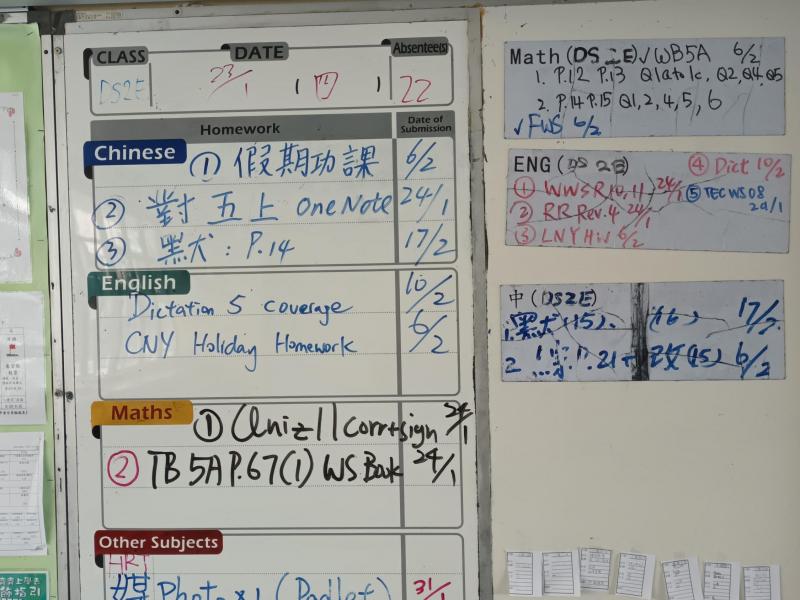 CLASS DATE Absentee(s)
DS2E 23/1 (四) 22
Homework Date of Submission
Chinese ① 假期功課 6/2
② 對五上 OneNote 24/1
③ 黑犬: P.14 17/2
English
Dictation 5 coverage 10/2
CNY Holiday Homework 6/2
Maths ① Quiz 11 Corr+sign 24/1
② TB 5A P.67(1) WS Book 24/1
Other Subjects
ART
Photo x1 (Padlet) 31/1
Math (DS 2E) √WB5A 6/2
1. P.12 P.13 Q1a to 1c, Q2, Q4, Q5
2. P.14 P.15 Q1, 2, 4, 5, 6
√ FWS 6/2
ENG (DS 2E) ④ Dict 10/2
① WWS R10, 11 24/1 ⑤ TEC WS 08 24/1
② RR Rev. 4 24/1
③ LNY HW 6/2
中 (DS2E)
1. 黑犬 (15)、(16) 17/2
2 P.21+ (15) 6/2